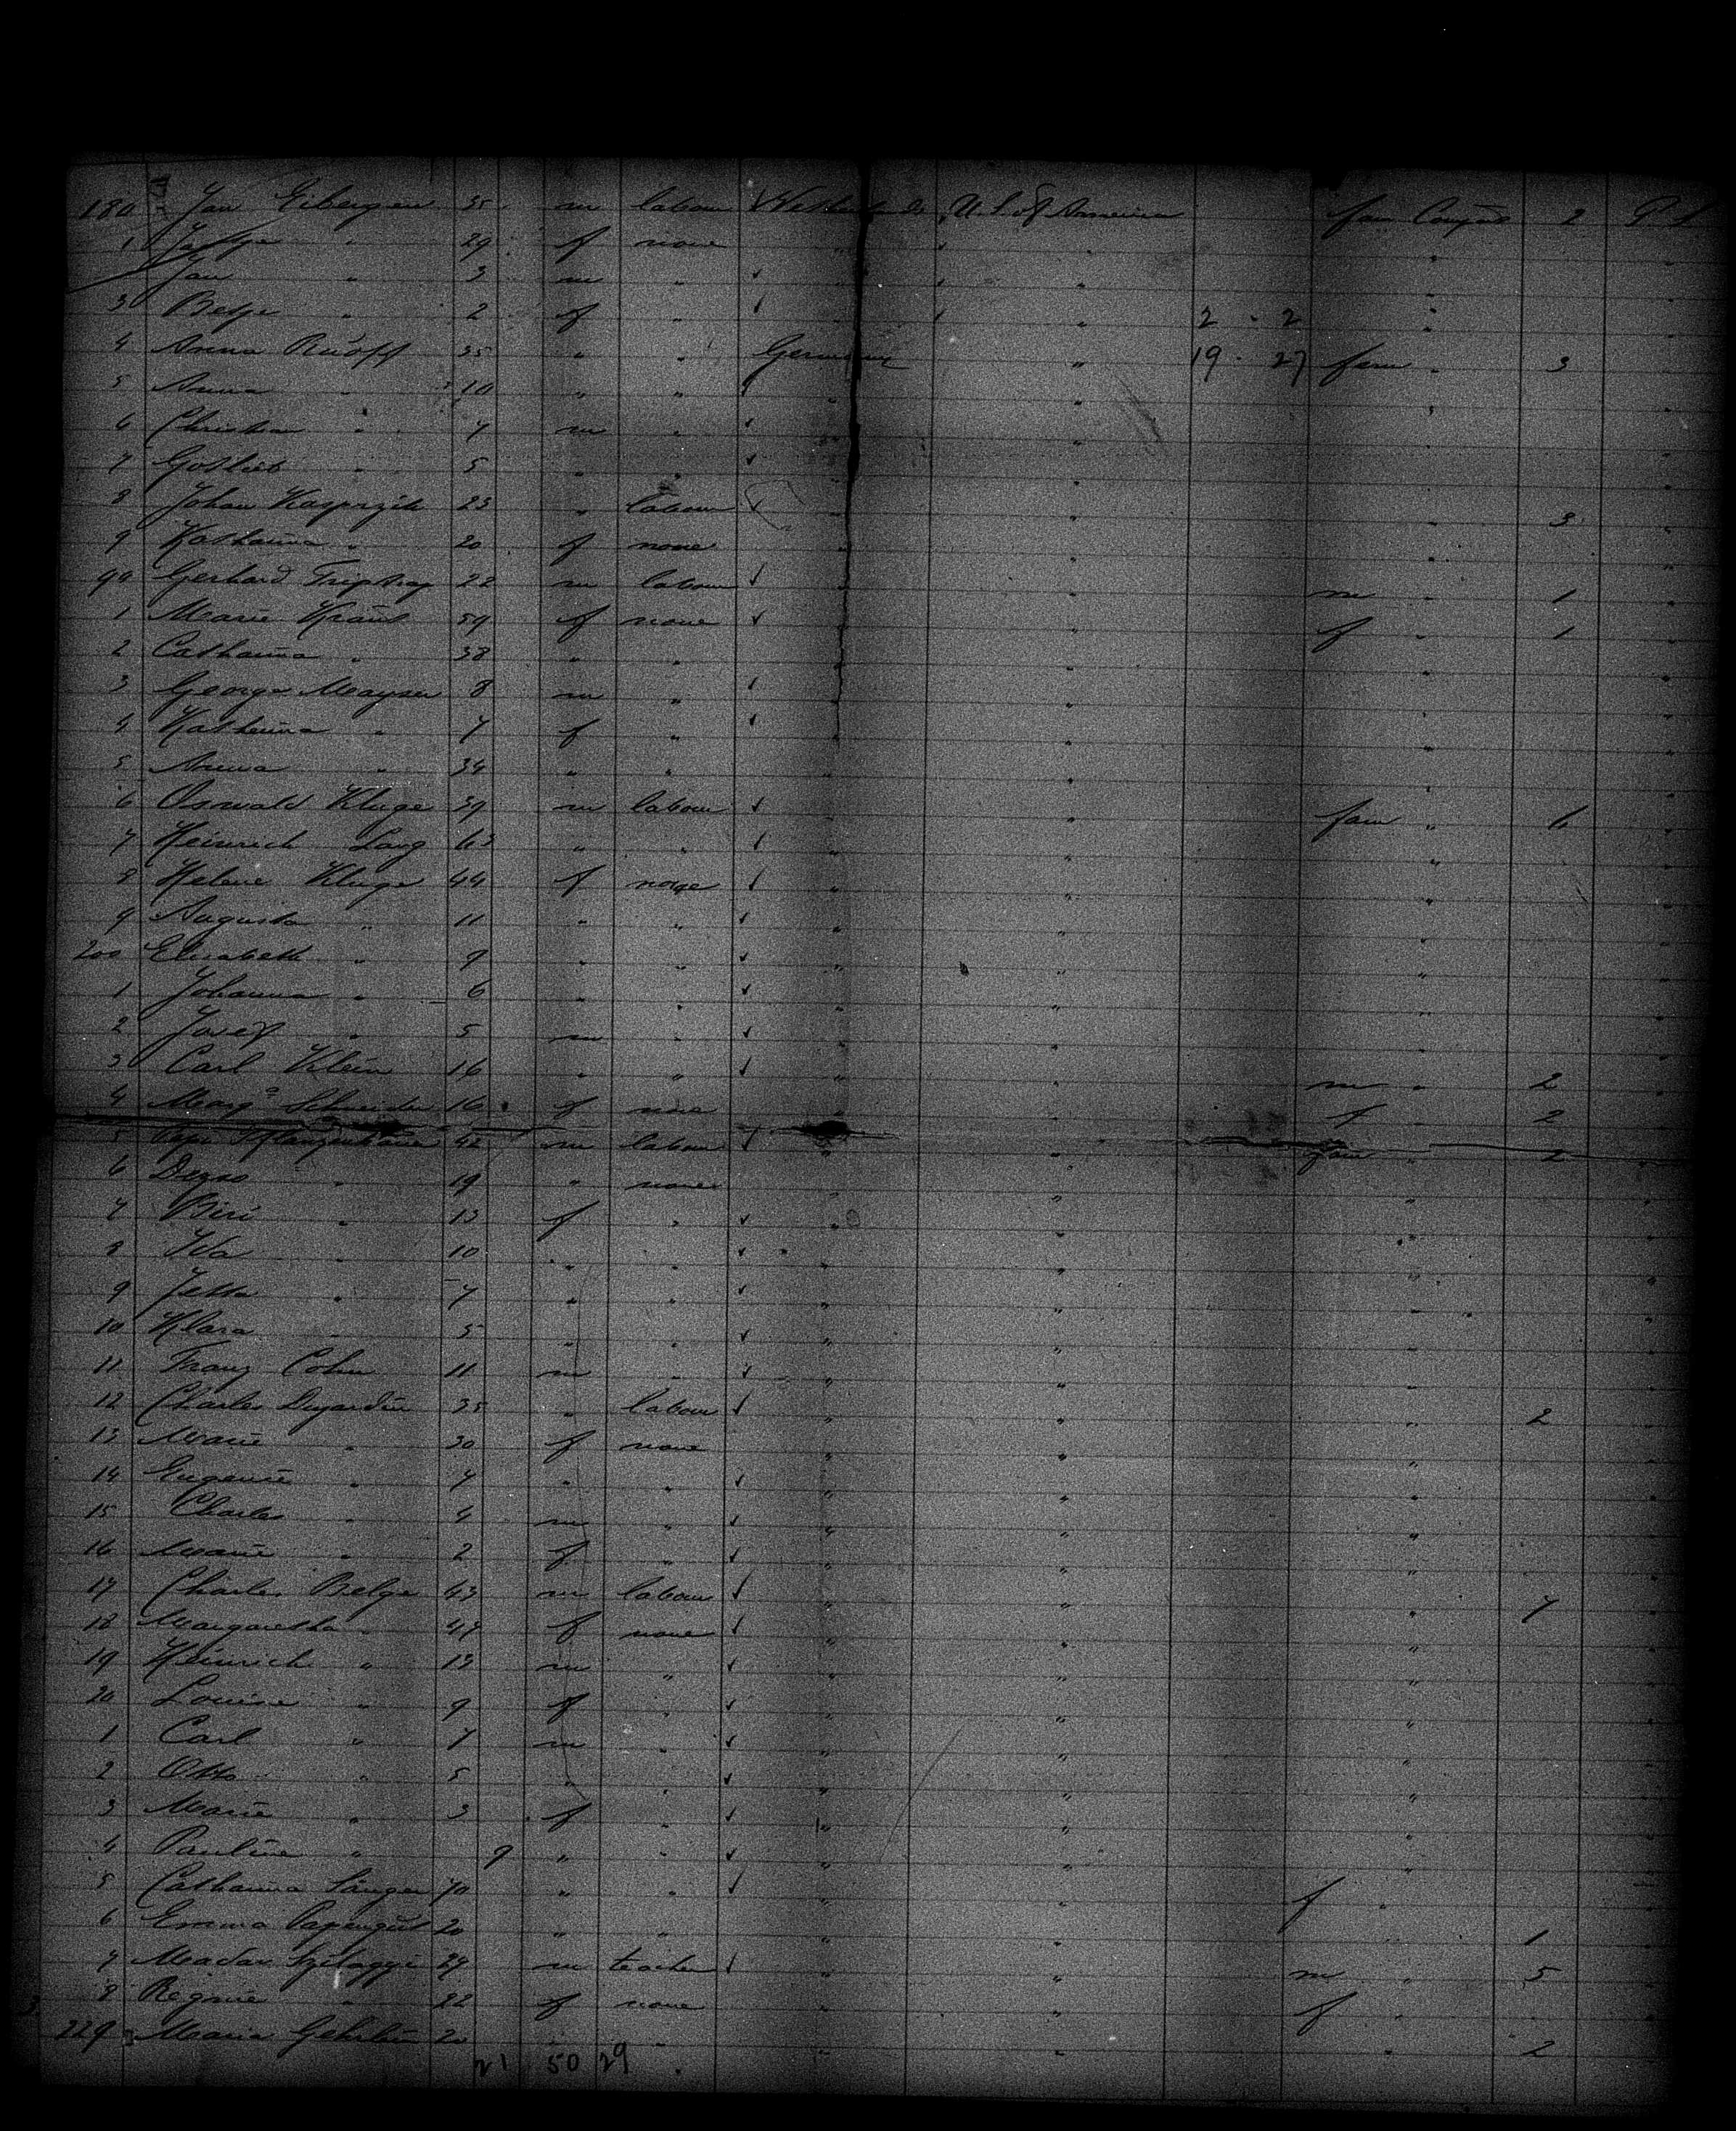 180 Jan Eibergen 35 m labour Netherlands U. S. of America fam Compas 2
1 " 29 f none " "
Jan " 3 m " " "
3 Betje " 2 f " " " 2 - 2 "
4 Anna Ruoff 35 " " Germany " 19 - 27 fam " 3
5 Anna " 10 " " " "
6 Christian " 7 m " " "
7 Gottlieb " 5 " " " "
8 Johan Kasprzik 23 " labour " " " 3
9 Katharina " 20 f none " "
90 Gerhard 22 m labour " " m " 1
1 Marie 59 f none " " f " 1
2 Catharina " 38 " " " "
3 George Mayser 8 m " " "
4 Katharina " 7 f " " "
5 Anna " 34 " " " "
6 Oswald Kluge 39 m labour " " fam " 6
7 Heinrich Lang 63 " " " " "
8 Helene Kluge 44 f none " " "
9 Augusta " 11 " " " " "
200 Elisabeth " 9 " " " " "
1 Johanna " 6 " " " "
2 Josef " 5 m " " "
3 Carl Klein 16 " " " " m " 2
4 Marg a Schneider 16 f none " " f " 2
5 42 m labour " " fam " 2
6 Dezso " 19 " none " " "
7 Biri " 13 f " " " "
8 Ida " 10 " " " "
9 Jetta " 7 " " " "
10 Klara " 5 " " " "
11 Franz Cohn 11 m " " "
12 Charles Dujardin 35 " labour " " " 2
13 Marie " 30 f none " " "
14 Eugenie " 7 " " " " "
15 Charles " 4 m " " " "
16 Marie " 2 f " " " "
17 Charles Belge 43 m labour " " " 7
18 Margaretha " 47 f none " " "
19 Heinrich " 13 m " " " "
20 Louise " 9 f " " " "
1 Carl " 7 m " " " "
2 Otto " 5 " " " " "
3 Marie " 3 f " " " "
4 Pauline " 9 " " " " "
5 Catharina Sänger 70 " " " " f "
6 Emma Papengut 20 " " " " " 1
7 Madar Szilagyi 29 m teacher " " m " 5
8 Regine " 22 f none " " f "
229 Maria 20 " " " " " 2
21 50 29